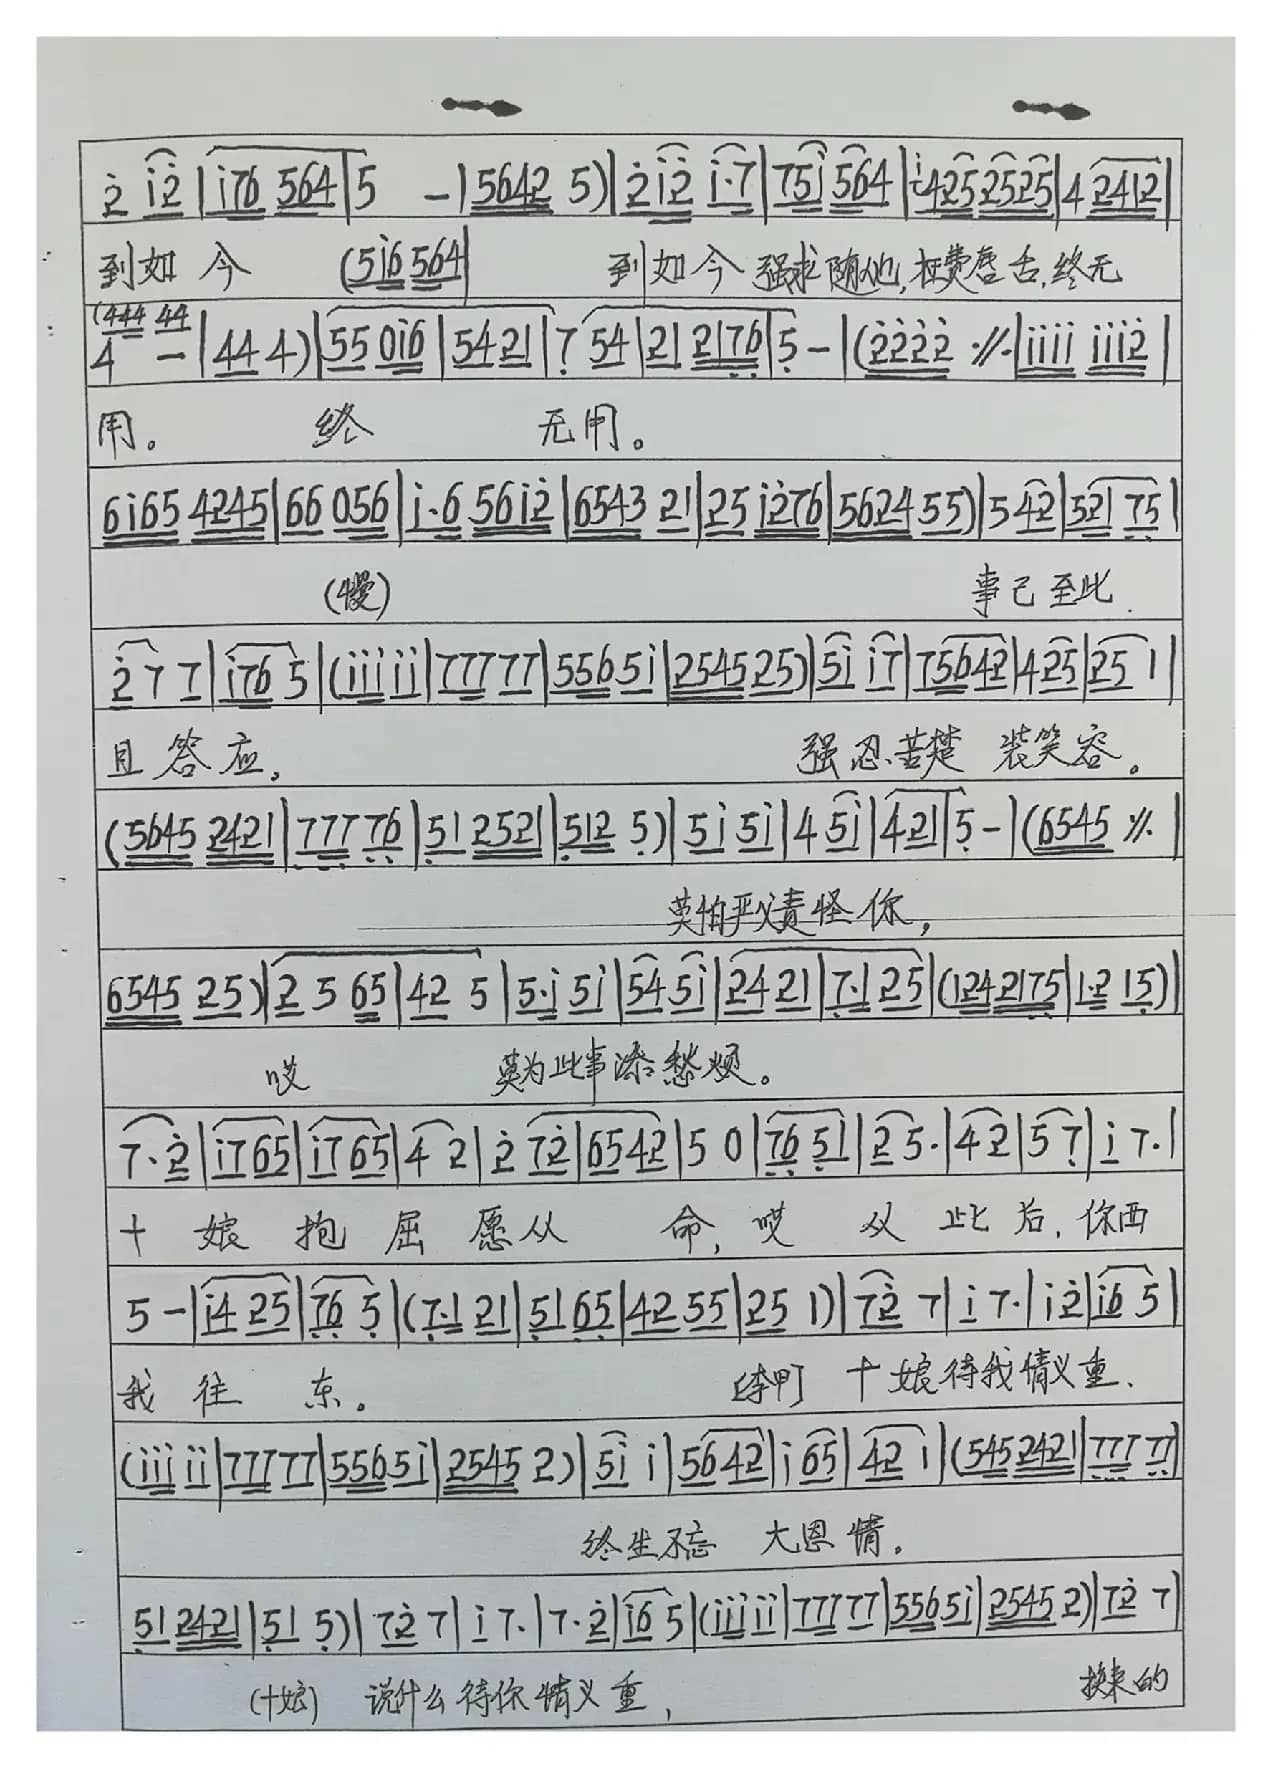 2̇ i̇2̇ | i̇76 564 | 5 - | 5642 5) | 2̇ i̇2̇ i̇·7 | 75i̇ 564 | i̇425 2525 | 4 2412 |
到如今 (5i̇6 564 到如今强求随他,枉费唇舌,终无
(444 44
4 - | 44 4) | 55 0i̇6 | 5421 | 7̣ 54 | 21 217̣6̣ | 5̣ - | (2̇2̇2̇2̇ ·//· | i̇i̇i̇i̇ i̇i̇i̇2̇ |
用。 终 无用。
6i̇65 4245 | 66 056 | i̇·6 56i̇2̇ | 6543 21 | 25 i̇2̇76 | 5624 55) | 5 42 | 521 7̣5̣ |
(慢) 事已至此
2̇ 7 7 | i̇76 5 | (i̇i̇i̇ i̇i̇ | 777 77 | 556 5i̇ | 2545 25) | 5i̇ i̇7 | 75642 | 4 25 | 25 1 |
且答应, 强忍苦楚 装笑容。
(5645 2421 | 7̣7̣7̣ 7̣6̣ | 5̣1 2521 | 5̣12 5̣) | 5i̇ 5i̇ | 4 5i̇ | 421 | 5̣ - | (6545 ·//· |
莫怕严父责怪你,
6545 25) | 2 5 65 | 42 5 | 5·i̇ 5i̇ | 54 5i̇ | 24 21 | 7̣·1 25 | (124 217̣5̣ | 1·2 15̣) |
哎 莫为此事添愁烦。
7·2̇ | i̇765 | i̇765 | 4 2 | 2̇ 72̇ | 6542 | 5 0 | 7̣6̣ 5̣1 | 2 5· | 4 2 | 5 7̣ | i̇ 7· |
十娘抱屈愿从 命,哎 从此后,你西
5 - | i̇4 25 | 7̣6̣ 5̣ | (7̣·1 21 | 5̣1 6̣5̣ | 42 55 | 25 1) | 72̇ 7 | i̇ 7· | i̇ 2̇ | i̇6 5 |
我往东。 (李甲) 十娘待我情义重.
(i̇i̇i̇ i̇i̇ | 777 77 | 556 5i̇ | 2545 2) | 5i̇ i̇ | 5642 | i̇ 65 | 42 1 | (545 2421 | 7̣7̣7̣ 7̣7̣ |
终生不忘 大恩情。
5̣1 2421 | 5̣1 5̣) | 72̇ 7 | i̇ 7· | 7·2̇ | i̇6 5 | (i̇i̇i̇ i̇i̇ | 777 77 | 556 5i̇ | 2545 2) | 72̇ 7 |
(十娘) 说什么待你情义重, 换来的